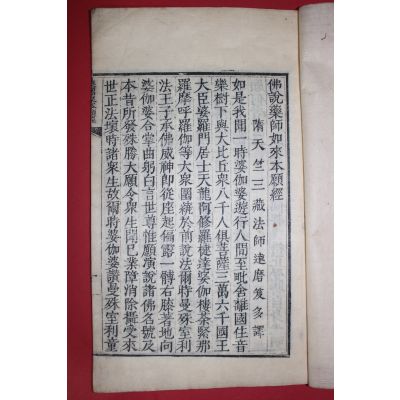 佛說藥師如來本願經
隋天竺三藏法師達磨笈多譯
如是我聞一時婆伽婆遊行人間至毗舍離國住音
樂樹下與大比丘衆八千人俱菩薩三萬六千國王
大臣婆羅門居士天龍阿修羅揵達婆伽樓茶緊那
羅摩呼羅伽等大衆圍繞於前說法爾時曼殊室利
法王子承佛威神卽從座起偏露一髆右膝著地向
婆伽婆合掌曲躬白言世尊惟願演說諸佛名號及
本昔所發殊勝大願令衆生聞已業障消除攝受來
世正法壞時諸衆生故爾時婆伽婆讚曼殊室利童